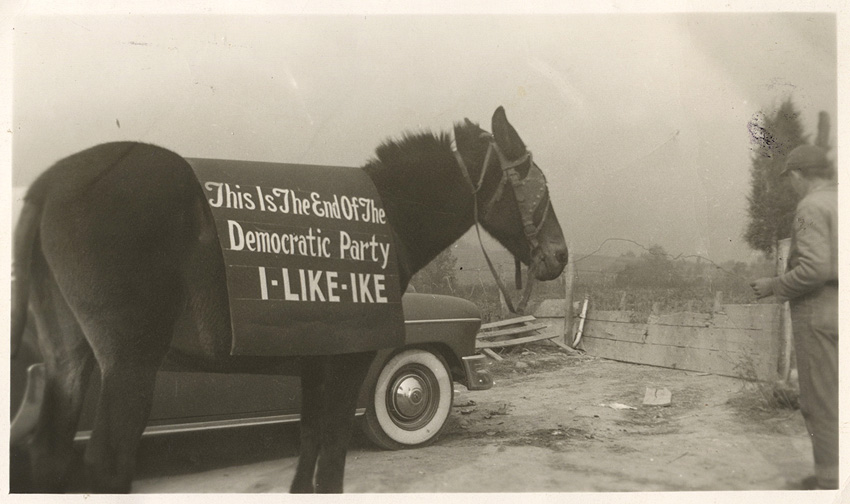 This Is The End Of The
Democratic Party
I-LIKE-IKE